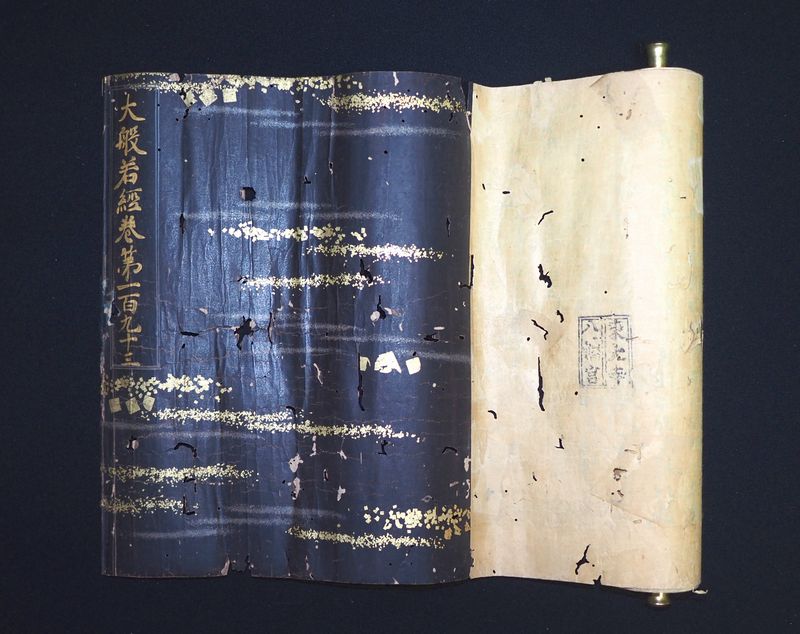 大般若經卷第一百九十三
東大寺
八幡宮